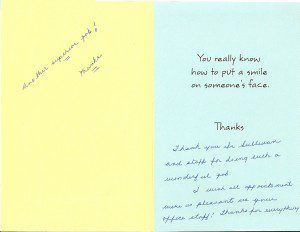 Another superior job!
Thanks
You really know
how to put a smile
on someone's face.
Thanks
Thank you Dr Sullivan
and staff for doing such a
wonderful job
I wish all appointments
were as pleasant as your
office staff! Thanks for everything